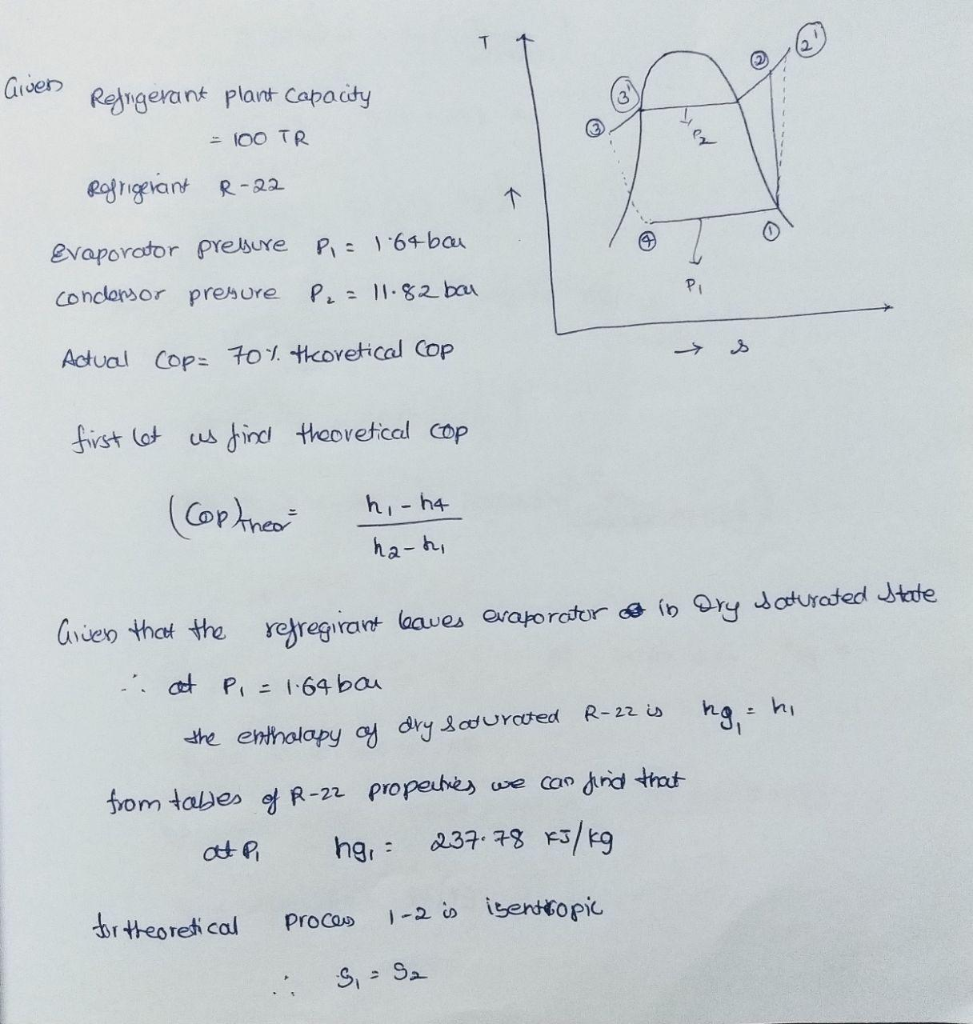 Given
Refrigerant plant Capacity
= 100 TR
Refrigerant R-22
Evaporator pressure P₁ = 1.64 bar
condensor pressure P₂ = 11.82 bar
Actual COP = 70% theoretical COP
T
↑
3'
3
2
2'
P₂
4
1
P₁
→ s
first let us find theoretical COP
(COP)theor = h₁ - h₄ / h₂ - h₁
Given that the refregirant leaves evaporator in Dry saturated state
∴ at P₁ = 1.64 bar
the enthalapy of dry saturated R-22 is hg₁ = h₁
from tables of R-22 properties we can find that
at P₁ hg₁ = 237.78 KJ/kg
for theoretical process 1-2 is isentropic
∴ S₁ = S₂